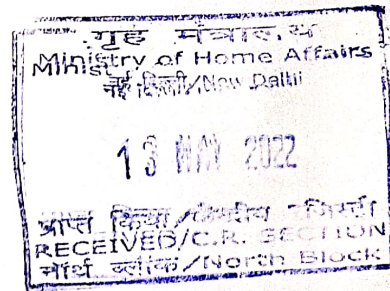 गृह मंत्रालय
Ministry of Home Affairs
नई दिल्ली/New Delhi
13 MAY 2022
प्राप्त किया/केन्द्रीय रजिस्ट्री
RECEIVED/C.R. SECTION
नॉर्थ ब्लॉक/North Block